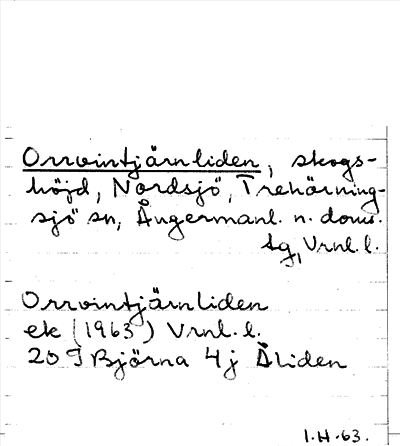 Orrvintjärnliden, skogs-
höjd, Nordsjö, Trehörning-
sjö sn, Ångermanl. n. doms.
tg, Vrnl. l.
Orrvintjärnliden
ek (1963) Vrnl. l.
20 J Björna 4 j Åliden
I.H.63.